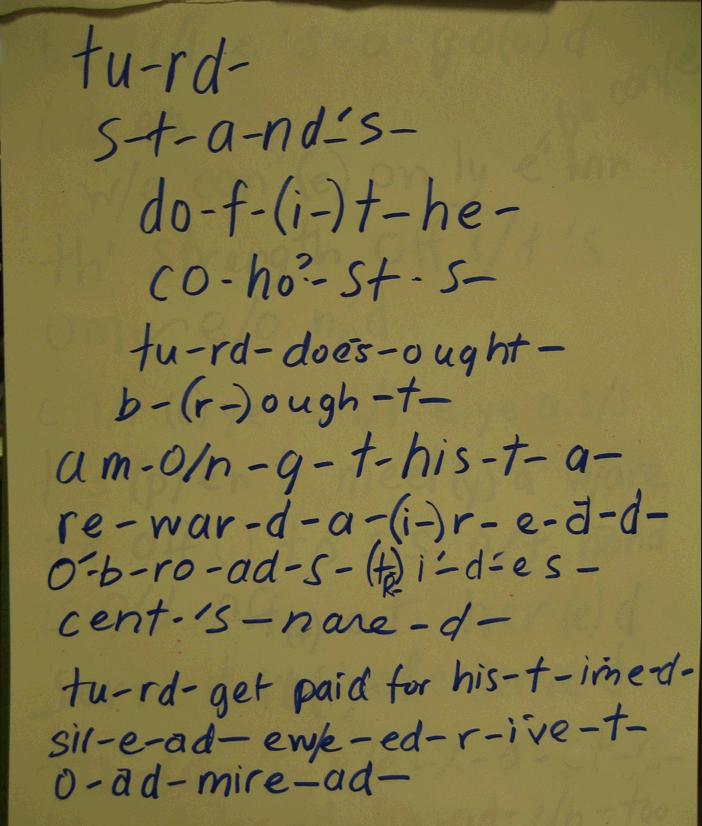 tu-rd-
s-t-a-nd-'s-
do-f-(i-)t-he-
co-ho?-st-s-
tu-rd-does-ought-
b-(r-)ough-t-
am-o/n-g-t-his-t-a-
re-war-d-a-(i-)r-e-d-d-
o'-b-ro-ad-s-(t) i'-d-es-
cent-'s-nare-d-
tu-rd-get paid for his-t-ime-d-
sil-e-ad-ewe-ed-r-ive-t-
o-ad-mire-ad-